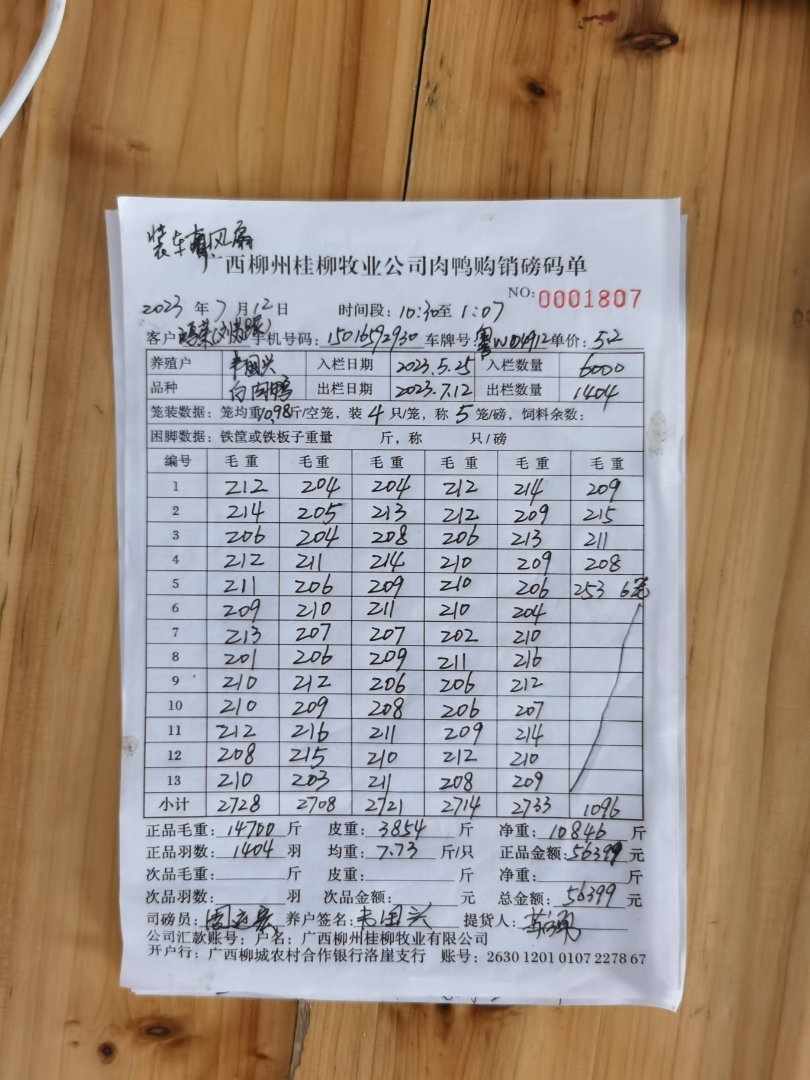 装车有风扇
广西柳州桂柳牧业公司肉鸭购销磅码单
NO: 0001807
2023 年 7 月 12 日 时间段: 10:30 至 1:07
客户 手机号码: 15016592930 车牌号: 单价: 5.2
养殖户 韦国兴 入栏日期 2023.5.25 入栏数量 6000
品种 白肉鸭 出栏日期 2023.7.12 出栏数量 1404
笼装数据: 笼均重 10.98 斤/空笼, 装 4 只/笼, 称 5 笼/磅, 饲料余数:
困脚数据: 铁筐或铁板子重量 斤, 称 只/磅
编号 毛重 毛重 毛重 毛重 毛重 毛重
1 212 204 204 212 214 209
2 214 205 213 212 209 215
3 206 204 208 206 213 211
4 212 211 214 210 209 208
5 211 206 209 210 206 253 6笼
6 209 210 211 210 204
7 213 207 207 202 210
8 201 206 209 211 216
9 210 212 206 206 212
10 210 209 208 206 207
11 212 216 211 209 214
12 208 215 210 212 210
13 210 203 211 208 209
小计 2728 2708 2721 2714 2733 1096
正品毛重: 14700 斤 皮重: 3854 斤 净重: 10846 斤
正品羽数: 1404 羽 均重: 7.73 斤/只 正品金额: 56399 元
次品毛重: 斤 皮重: 斤 净重: 斤
次品羽数: 羽 次品金额: 元 总金额: 56399 元
司磅员: 养户签名: 韦国兴 提货人:
公司汇款账号: 户名: 广西柳州桂柳牧业有限公司
开户行: 广西柳城农村合作银行洛崖支行 账号: 2630 1201 0107 2278 67